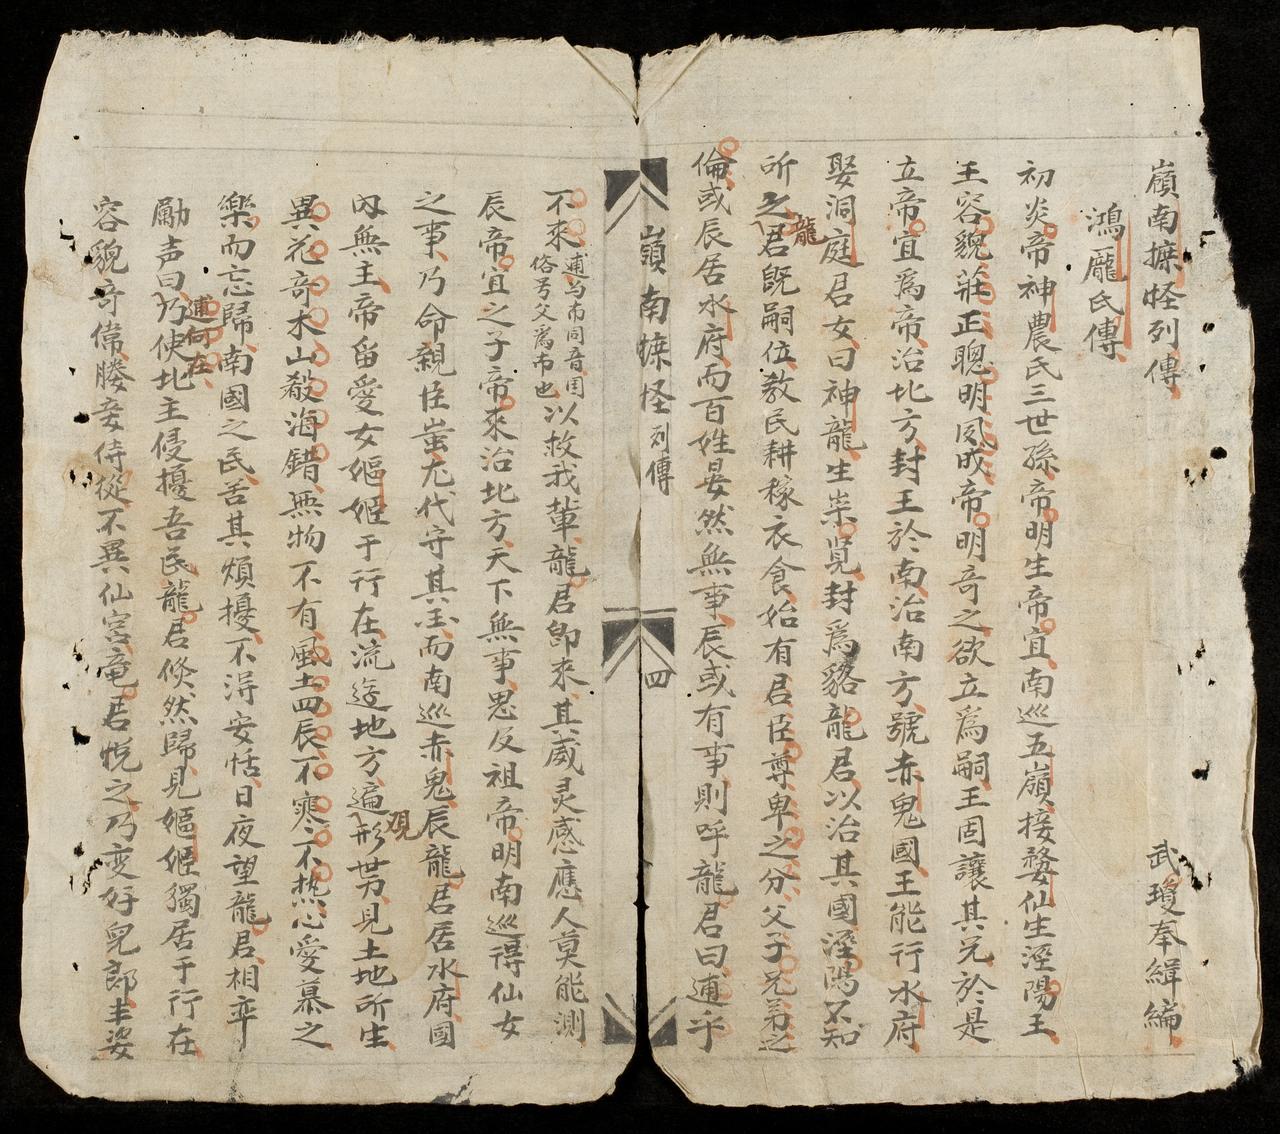 嶺南摭怪列傳
武瓊奉緝編
鴻厖氏傳
初炎帝神農氏三世孫帝明生帝宜南巡五嶺接婺仙生涇陽王
王容貌莊正聰明夙成帝明奇之欲立爲嗣王固讓其兄於是
立帝宜爲帝治北方封王於南治南方號赤鬼國王能行水府
娶洞庭君女曰神龍生崇覽封爲貉龍君以治其國涇陽不知
所之龍君既嗣位教民耕稼衣食始有君臣尊卑之分父子兄弟之
倫或辰居水府而百姓晏然無事辰或有事則呼龍君曰逋乎
嶺南摭怪列傳
四
不來逋与布同音国俗号父爲布也以救我輩龍君即來其威灵感應人莫能測
辰帝宜之子帝來治北方天下無事思反祖帝明南巡得仙女
之事乃命親臣蚩尤代守其国而南巡赤鬼辰龍君居水府國
内無主帝留愛女嫗姬于行在流遊地方遍觀形势見土地所生
異花奇木山殽海錯無物不有風土四辰不寒不热心愛慕之
樂而忘歸南國之民苦其煩擾不得安恬日夜望龍君相率
勵声曰逋何在乃使北主侵擾吾民龍君倏然歸見嫗姬獨居于行在
容貌奇偉媵妾侍從不異仙宮竜君悅之乃变好兒郎丰姿